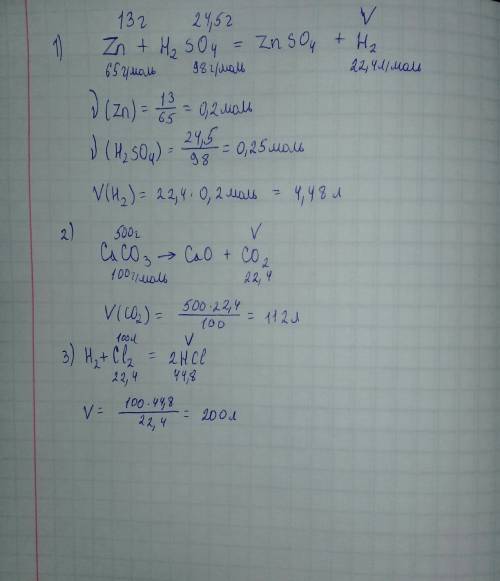 13г 24,5г V
1) Zn + H₂SO₄ = ZnSO₄ + H₂
65г/моль 98г/моль 22,4л/моль
ν(Zn) = 13/65 = 0,2моль
ν(H₂SO₄) = 24,5/98 = 0,25моль
V(H₂) = 22,4 · 0,2моль = 4,48л
2) 500г V
CaCO₃ → CaO + CO₂
100г/моль 22,4
V(CO₂) = 500·22,4/100 = 112л
100л V
3) H₂ + Cl₂ = 2HCl
22,4 44,8
V = 100·44,8/22,4 = 200л